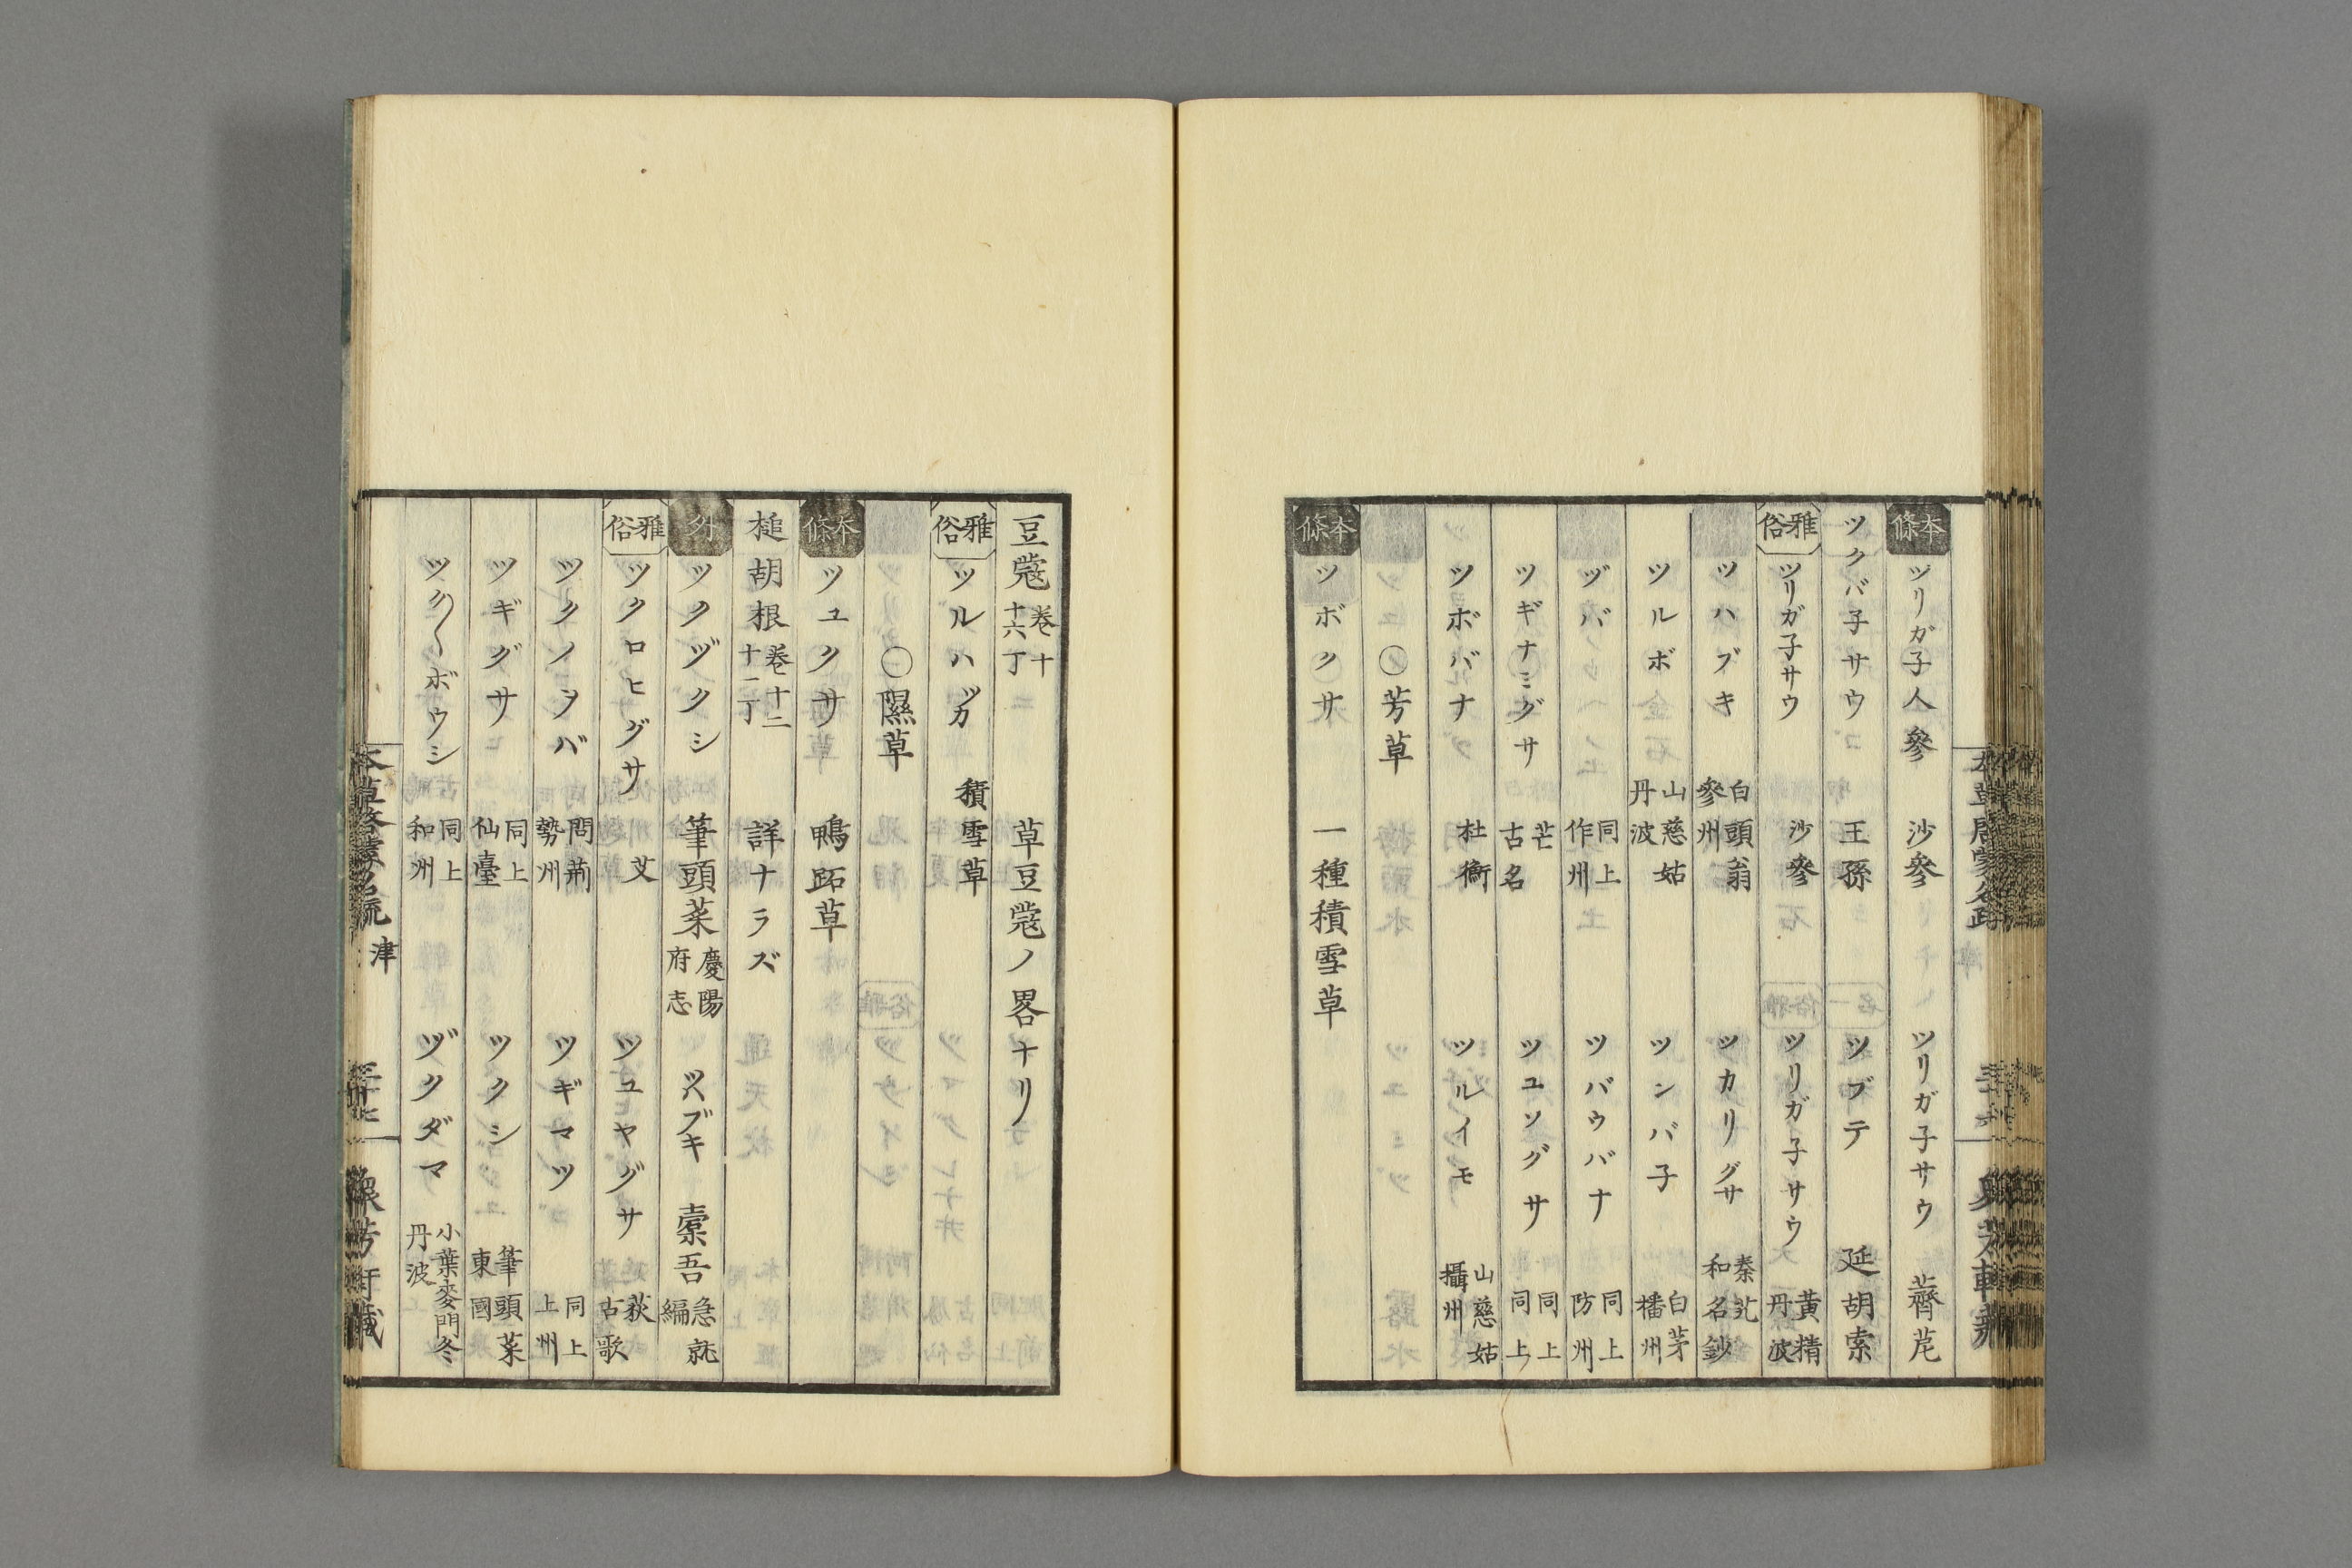 本條 ツリガ子人參 沙參 ツリガ子サウ 薺苨
ツクバ子サウ 王孫 ツブテ 延胡索
雅俗 ツリガ子サウ 沙參 ツリガ子サウ 黃精 丹波
ツハブキ 白頭翁 參州 ツカリグサ 秦艽 和名鈔
ツルボ 山慈姑 丹波 ツンバ子 白茅 播州
ヅバ 同上 作州 ツバウバナ 同上 防州
ツギナミグサ 芒 古名 ツユソグサ 同上 同上
ツボバナ 杜衡 ツルイモ 山慈姑 攝州
○芳草
本條 ツボクサ 一種積雪草
豆蔲 卷十 十六丁 草豆蔲ノ畧ナリ
雅俗 ツルハッカ 積雪草
○隰草
本條 ツユクサ 鴨跖草
槌胡根 卷十二 十一丁 詳ナラズ
外 ツクヅクシ 筆頭菜 慶陽府志 ツハブキ 橐吾 急就編
雅俗 ツクロヒグサ 艾 ツユヤグサ 荻 古歌
ツクノヲバ 問荊 勢州 ツギマツ 同上 上州
ツギグサ 同上 仙臺 ツクシ 筆頭菜 東國
ツク〱ボウシ 同上 和州 ヅクダマ 小葉麥門冬 丹波
本草啓蒙名疏 津